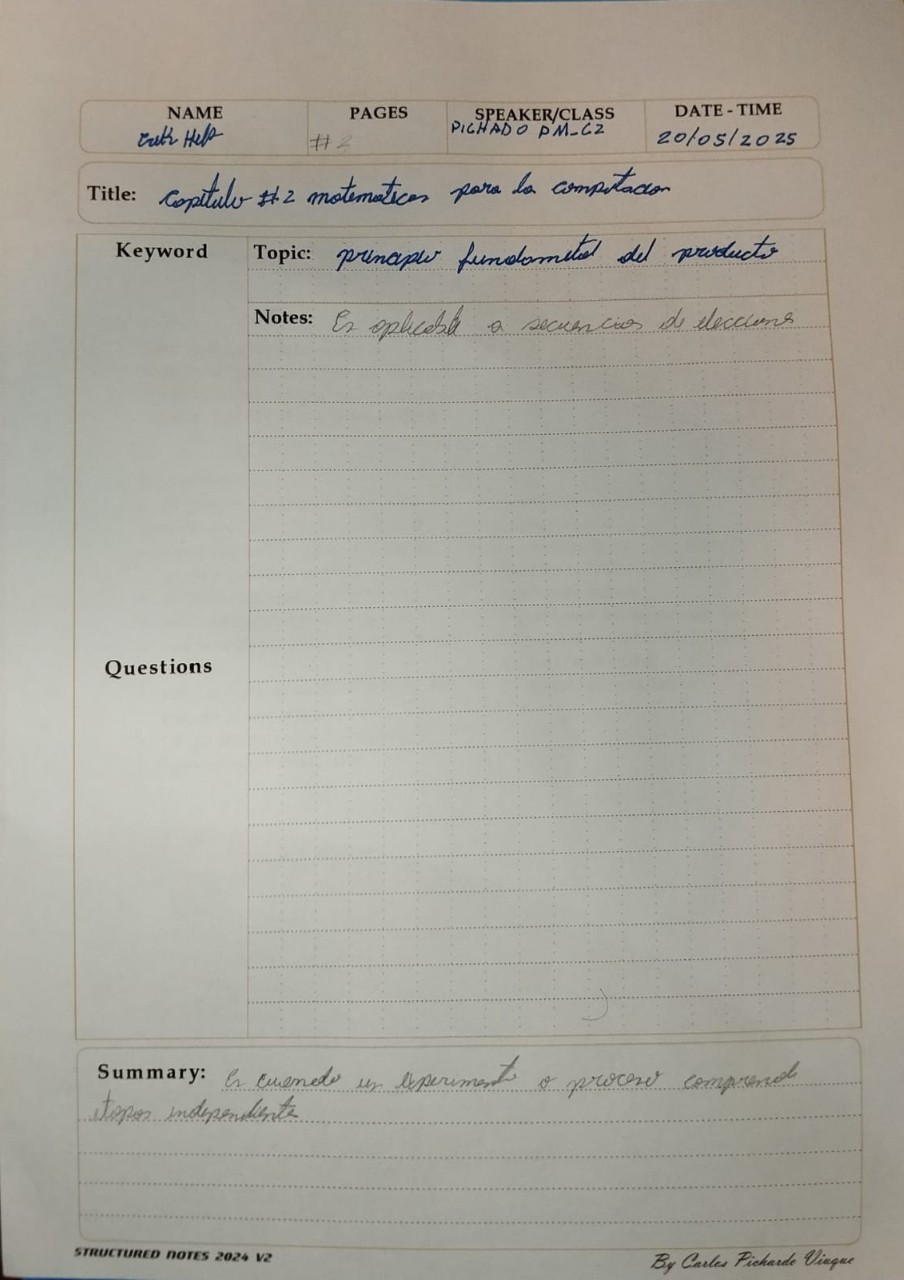 NAME PAGES SPEAKER/CLASS DATE - TIME
# 2 PICHADO PM-C2 20/05/2025
Title: Capitulo #2 matematicas para la computacion
Keyword
Topic: principio fundametal del producto
Notes: Es aplicable a secuencias de elecciones
Questions
Summary: Es cuando un experimento o proceso comprend
etapas independiente
STRUCTURED NOTES 2024 V2
By Carlos Pichardo Viuque